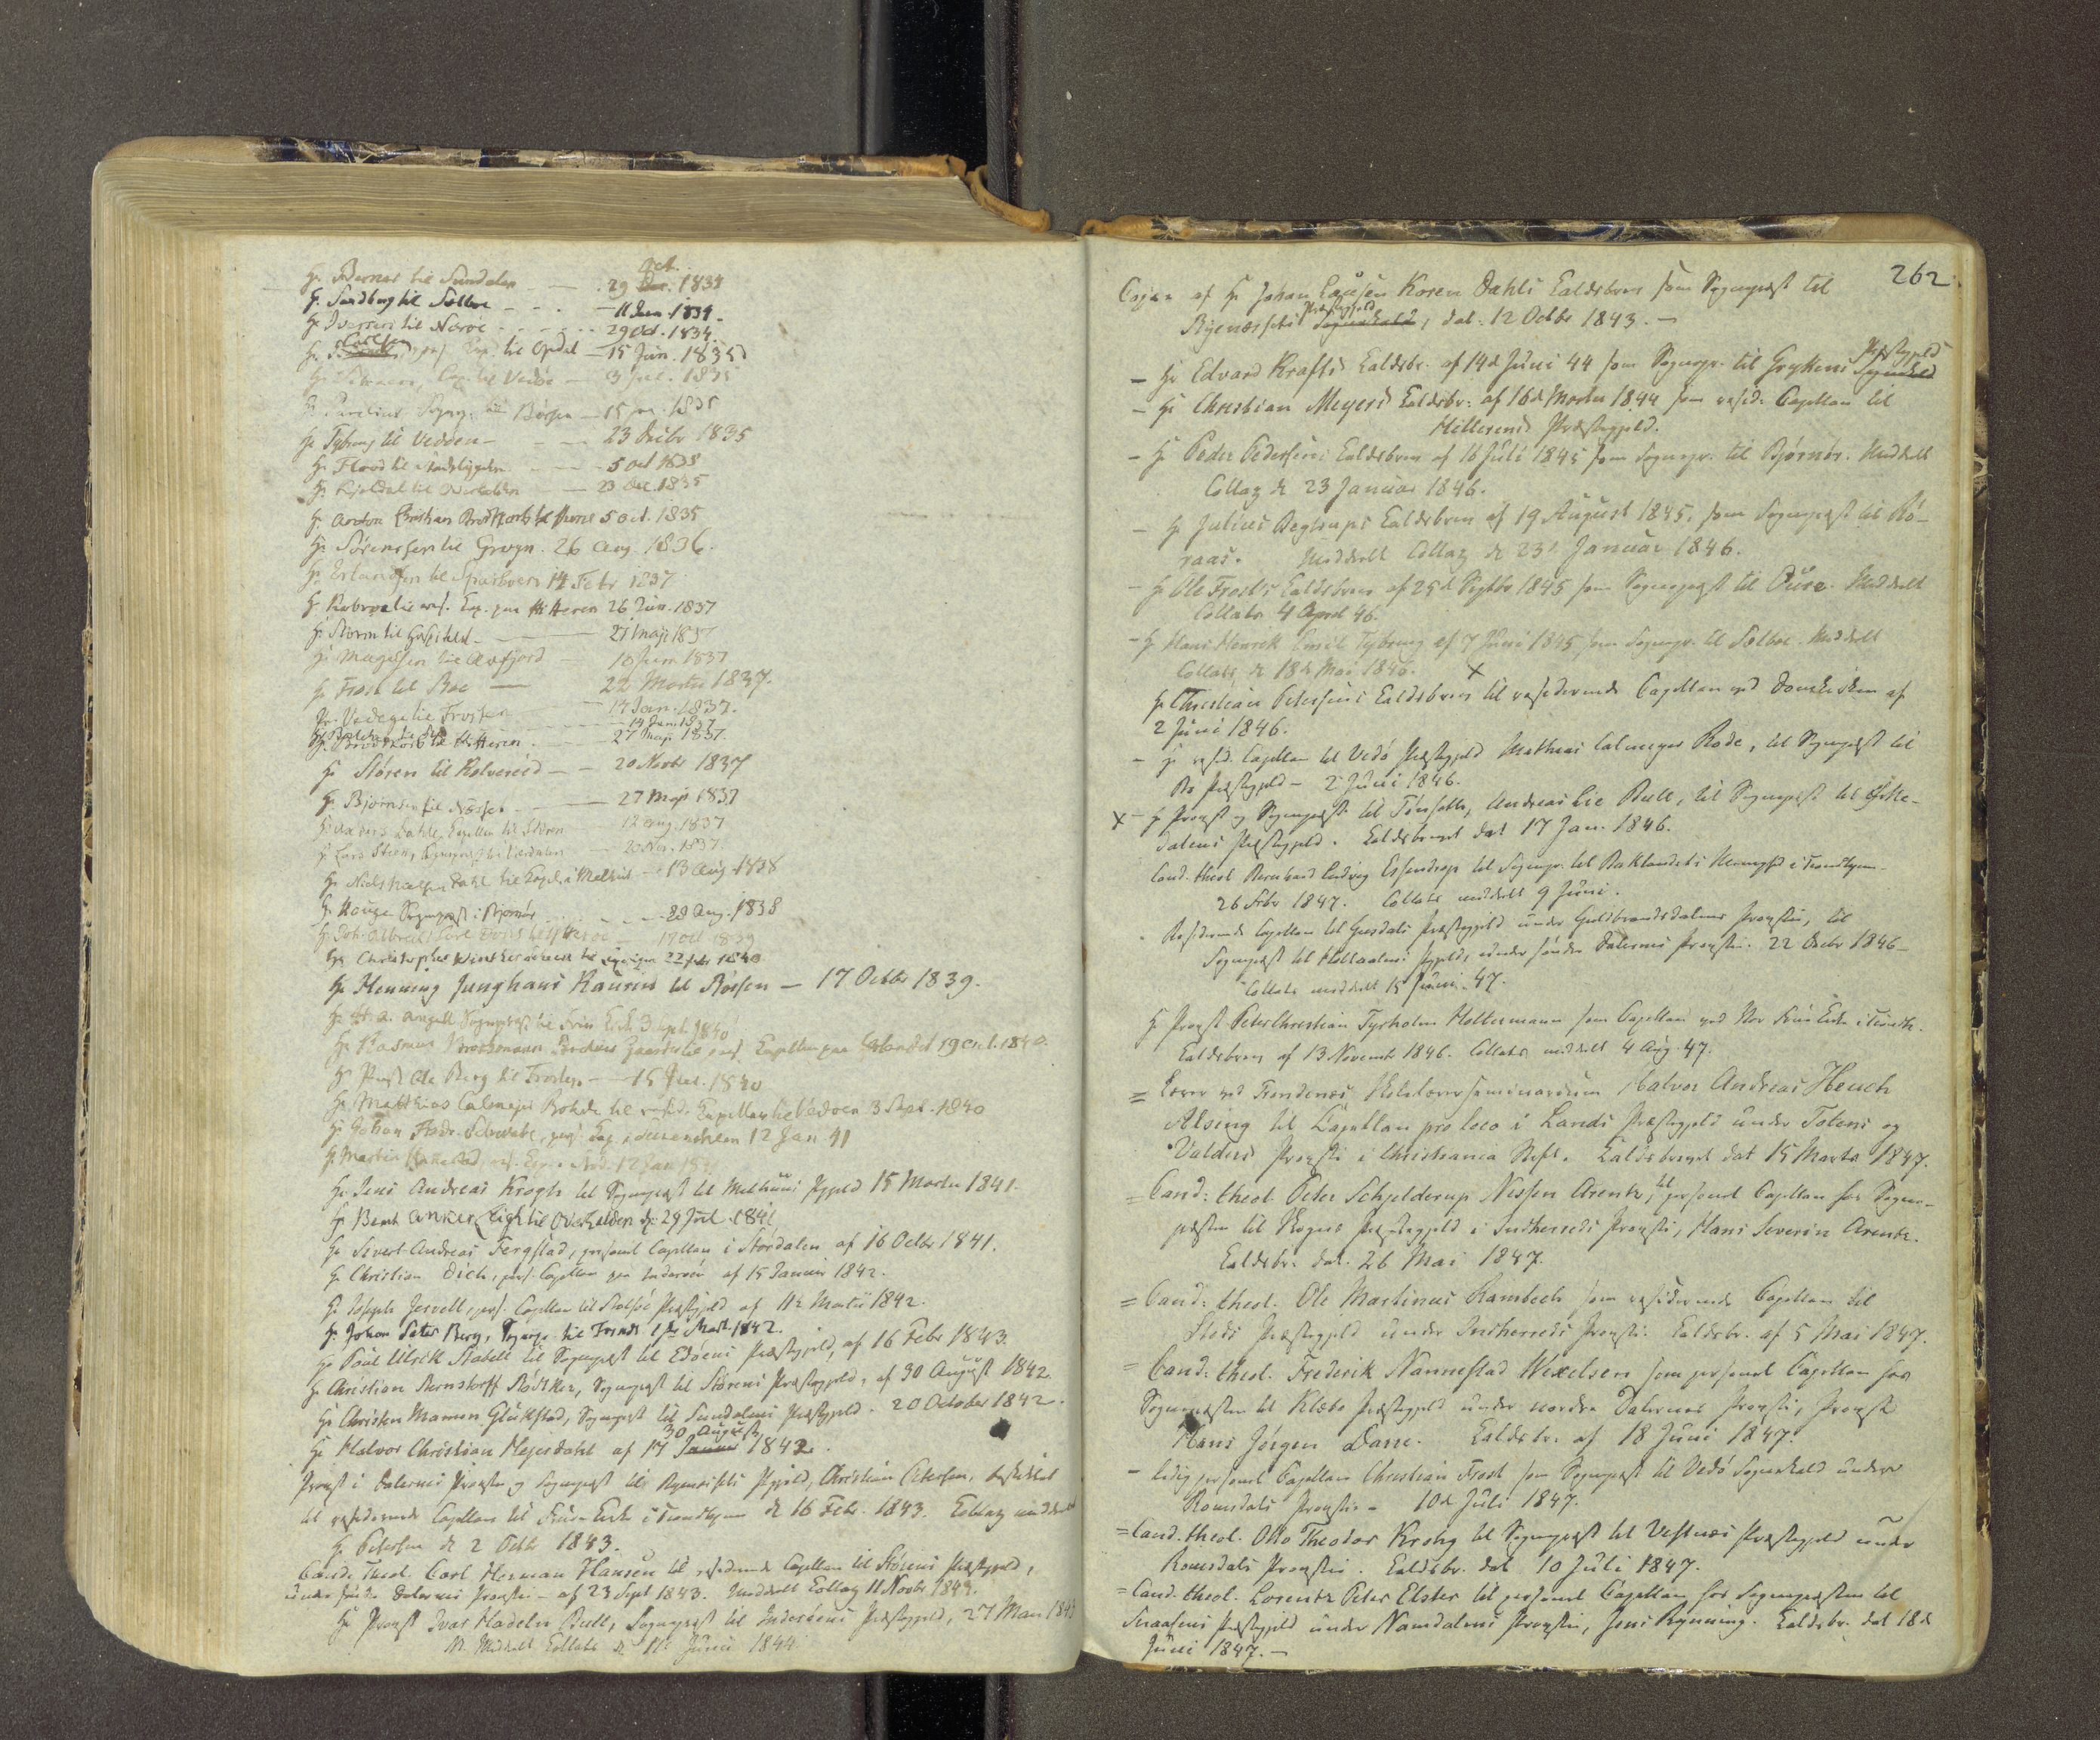 Hr. Berner til Sundalen — 29 Oct. 1834
Hr. Sandberg til Selboe — 11 Jun. 1834.
Hr. Iversen til Næröe — 29 Oct. 1834.
Carlsen
pers. Cap. til Opdal — 15 Jun. 1835
Cap. til Vedöe — 3 Jul. 1835
Hr. Parelius Sognpr. til Börsen — 15 1835
Hr. Tybring til Vedöen — 23 Decbr 1835
Hr. Flood til Stadsbygden — 5 Oct 1835
Hr. Kjeldal til Overhalden — 23 Dec. 1835
Hr. Anton Christian 5 Oct. 1835
Hr. Sörenssen til Grogn. 26 Aug. 1836.
Hr. Erlandsen til Sparboen 14 Febr 1837
Hr. res. Cap. paa Hitteren 26 Jun. 1837
Hr. Storm til Hospitalet — 27 Maji 1837
Hr. Magelsen til Aafjord — 10 Jun. 1837
Hr. Frost til Boe — 22 Martii 1837.
Pr. til Frosten — 14 Jan. 1837.
14 Jan. 1837
til Hitteren. 27 Maji 1837.
Hr. Stören til Kolvereid — 20 Novbr 1837
Hr. Björnson til Næsset — 27 Maji 1837
Dahle, Capellan til Stören 12 Aug. 1837
Hr. Lars Ström, Sognepræst til Værdalen 20 Nov. 1837.
Hr. Niels Dahl til Capel. i Melhus — 13 Aug. 1838
Hr. Hauge Sognepræst i Björnör — 28 Aug. 1838
Hr. Joh. Albrecht til Hitteröe 17 Oct 1839
Hr. Christopher 22 Febr 1840
Hr. Henning Junghans Kaurin til Röesen — 17 Octbr 1839.
Hr. H. A. Angell Sognepræst til Frue Kirke 3 Sept. 1840
Hr. Rasmus pers. Capellan paa 19 Oct. 1840.
Hr. Provst Ole Berg til Frosten — 15 1840
Hr. Matthias Calmejer Rohde til resid. Capellan til Vedöen 3 Sept. 1840
Hr. Johan Fredr. Schwabe, pers. Cap. 12 Jan 41
Hr. Martin pers. Cap. 12 Jan 18
Hr. Jens Andreas Krogh til Sognepræst til Melhuus Pgjeld 15 Martii 1841.
Hr. Bernt Anker Leigh til Overhalden d: 29 Jul. 1841
Hr. Sivert Andreas Fergstad, personel Capellan i Stordalen af 16 Octbr 1841.
Hr. Christian Dick, pers. Capellan paa Inderöen af 15 Januar 1842.
Hr. Joseph Jervell, pers. Capellan til Stadsöe Præstegjeld af 11te Martii 1842.
Hr. Johan Peter Berg, Sognpr. til 1ste Mart. 1842.
Hr. Poul Ulrik Stabell til Sognepræst til Edöens Præstegjeld, af 16 Febr 1843.
Hr. Christian Bernstorff Rödsker, Sognepræst til Störens Præstegjeld, af 30 August 1842.
Hr. Christen Mamen Glückstad, Sognepræst til Sundalens Præstegjeld. 20 October 1842.
30 August
Hr. Halvor Christian Hejerdahl af 17 Januar 1842.
Provst i Dalernes Provstie og Sognepræst til Byenæssets Pgjeld, Christian Petersen, beskikket
til residerende Capellan til Frue Kirke i Trondhjem d 16 Febr. 1843. Collatz meddeelt
Hr. Petersen d 2 Octbr 1843.
Candid. Theol. Carl Herman Hansen til residerende Capellan til Störens Præstegjeld,
under söndre Dalernes Provstie — af 23 Sept 1843. Meddeelt Collatz 11 Novbr 1843.
Hr. Provst Ivar Hadeln Bull, Sognepræst til Inderöens Præstegjeld, 27 Mai 184
M. Meddeelt Collats d. 11te Junii 1844.
262
Copie af Hr. Johan Koren Dahls Kaldsbrev som Sognepræst til
Præstegjeld
Byenæssets Sognekald, dat. 12 Octbr 1843. —
Præstegjeld
— Hr. Edvard Krafts Kaldsbr. af 14de Juni 44 som Sognepr. til Grytten's Sognekald
— Hr. Christian Meyers Kaldsbr. af 16de Martii 1844 som resid. Capellan til
Hitterens Præstegjeld.
— Hr. Peder Pedersens Kaldsbrev af 16 Juli 1845 som Sognepr. til Björnör. Meddeelt
Collaz d. 23 Januar 1846.
— Hr. Julius Degtrups Kaldsbrev af 19 August 1845, som Sognepræst til Rö-
raas. Meddeelt Collaz d. 23d Januar 1846.
— Hr. Ole Frosts Kaldsbrev af 25d Septbr 1845 som Sognepræst til Öure. Meddeelt
Collats 4 April 46.
— Hr. Hans Henrik Emil Tybring af 7 Juni 1845 som Sognepr. til Selboe. Meddeelt
Collats d. 18de Mai 1846. ×
Hr. Christian Petersens Kaldsbrev til residerende Capellan ved Domkirken af
2 Juni 1846.
— Hr. resid. Capellan til Vedö Præstegjeld Mathias Calmeyer Rode, til Sognepræst til
Bö Præstegjeld — 2 Juni 1846.
× — Hr. Provst og Sognepræst til Tönsetts, Andreas Lie Bull, til Sognepræst til
dalens Præstegjeld. Kaldsbrevet dat 17 Jan. 1846.
Cand. theol Bernhard Ludvig Essendrop til Sognepr. til Baklandets Menighed i Trondhjem.
26 Febr 1847. Collats meddeelt 9 Juni.
Residerende Capellan til Gusdals Præstegjeld under Guldbrandsdalens Provstie, til
Sognepræst til Holtaalens Pgjeld, under söndre Dalernes Provstie. 22 Decbr 1846 —
Collats meddeelt 15 Juni 47.
Hr. Provst Peter Christian Tyrholm Holtermann som Capellan ved Vor Frue Kirke i Trondh.
Kaldsbrev af 13 Novemb 1846. Collats meddeelt 4 Aug. 47.
= Lærer ved Trondenæs Skolelærerseminarium, Halvor Andreas Heuch
Alsing til Capellan pro loco i Lands Præstegjeld under Totens og
Valders Provstie i Christiania Stift. Kaldsbrevet dat 15 Marts 1847.
= Cand: theol Peder Schjelderup Nissen Arentz, til personel Capellan for Sogne-
præsten til Skogns Præstegjeld i Indherreds Provstie, Hans Severin Arentz.
Kaldsbr. dat. 26 Mai 1847.
= Cand: theol. Ole Martinus Rambech som residerende Capellan til
Stods Præstegjeld under Indherreds Provstie. Kaldsbr. af 5 Mai 1847.
= Cand: theol. Frederik Nannestad Wexelsen som personel Capellan for
Sognepræsten til Klæbo Præstegjeld under nordre Dalernes Provstie, Provst
Hans Jörgen Darre. Kaldsbr. af 18 Juni 1847.
— Ledig personel Capellan Christian Frost som Sognepræst til Vedö Sognekald under
Romsdals Provstie — 10de Juli 1847.
= Cand. theol. Otto Theodor Krohg til Sognepræst til Vestnæs Præstegjeld under
Romsdals Provstie. Kaldsbr. dat 10 Juli 1847.
= Cand. theol. Lorentz Peter Elster til personel Capellan for Sognepræsten til
Snaasens Præstegjeld under Namdalens Provstie, Jens Rynning. Kaldsbr. dat 18de
Juni 1847. —